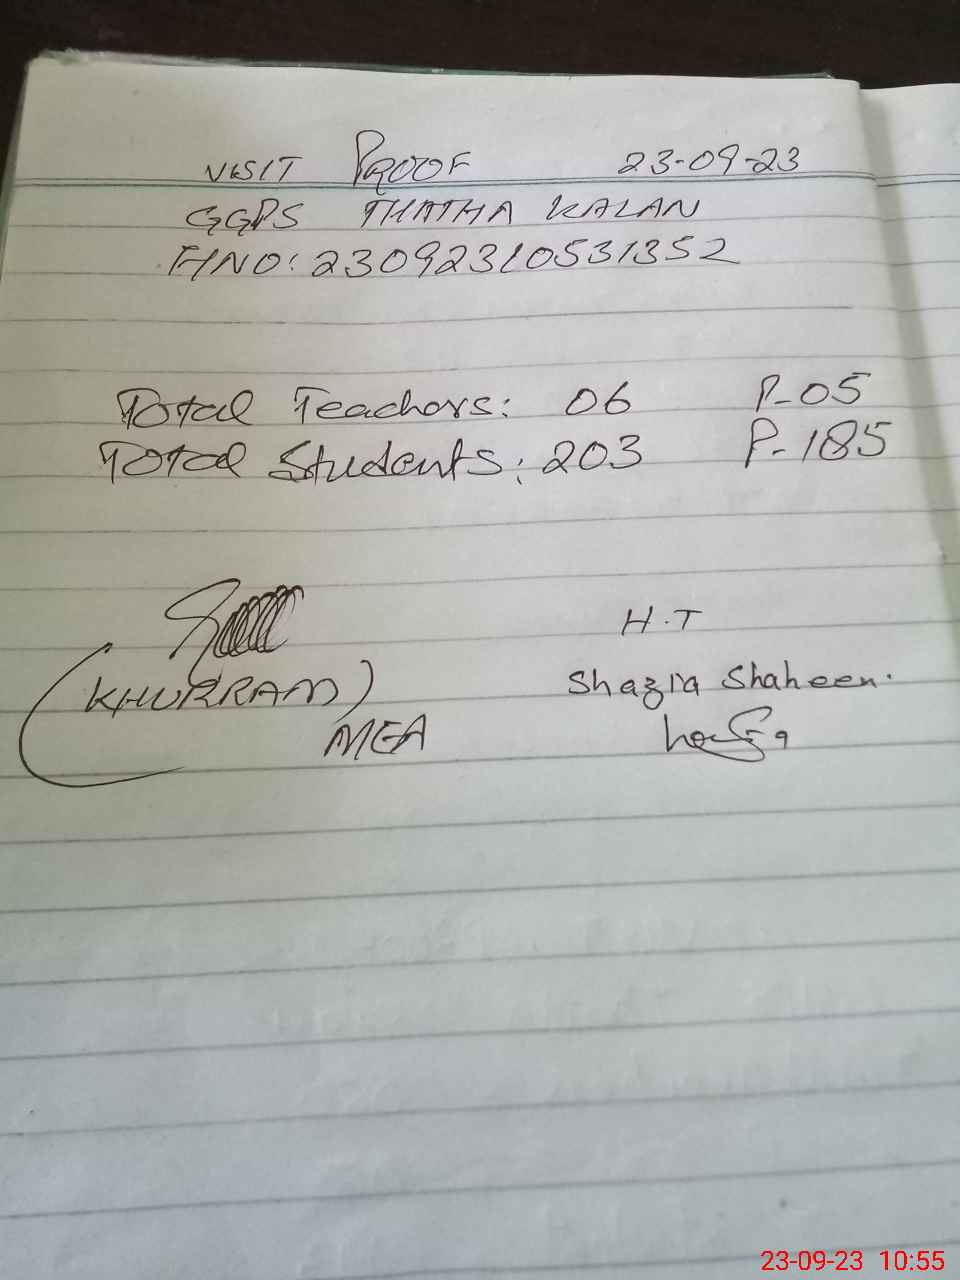 VISIT PROOF 23-09-23
GGPS THATHA KALAN
FHNO: 23092310531352
Total Teachers: 06 P-05
Total Students: 203 P-185
H.T
(KHURRAM) Shazia Shaheen.
MEA
23-09-23 10:55